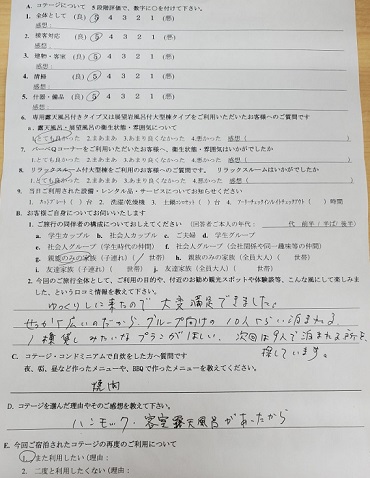 A. コテージについて 5段階評価で、数字に○を付けて下さい。
1. 全体として (良) 5 4 3 2 1 (悪)
感想:
2. 接客対応 (良) 5 4 3 2 1 (悪)
感想:
3. 建物・客室 (良) 5 4 3 2 1 (悪)
感想:
4. 清掃 (良) 5 4 3 2 1 (悪)
感想:
5. 什器・備品 (良) 5 4 3 2 1 (悪)
感想:
6. 専用露天風呂付きタイプ又は展望岩風呂付大型棟タイプをご利用いただいたお客様へのご質問です
a. 露天風呂・展望風呂の衛生状態・雰囲気について
1.とても良かった 2.まあまあ 3.あまり良くなかった 4.悪かった 感想( )
7. バーベQコーナーをご利用いただいたお客様へ、衛生状態・雰囲気はいかがでしたか
1.とても良かった 2.まあまあ 3.あまり良くなかった 4.悪かった 感想( )
8. リラックスルーム付大型棟をご利用のお客様へのご質問です。 リラックスルームはいかがでしたか
1.とても良かった 2.まあまあ 3.あまり良くなかった 4.悪かった 感想( )
9. 当日ご利用された設備・レンタル品・サービスについてお知らせください
B. お客様ご自身についてお伺いいたします
1. ご旅行の同伴者の構成についておしえてください (回答者ご本人の年代: 代 前半/半ば/後半)
a. 学生カップル b. 社会人カップル c. ご夫婦 d. 学生グループ
e. 社会人グループ(学生時代の仲間) f. 社会人グループ(会社関係や同一趣味等の仲間)
g. 親族のみの家族(子連れ)( / 世帯) h. 親族のみの家族(全員大人)( 世帯)
i. 友達家族(子連れ)( 世帯) j. 友達家族(全員大人)( 世帯)
2. 今回のご旅行全体として、ご利用の目的や、付近のお勧め観光スポットや体験談等、こんな風にして楽しみま
した、という口コミ情報を教えて下さい。
ゆっくりしに来たので 大変満足できました。
せっかく広いのだから、グループ向けの 10人くらい泊まれる
1棟貸し みたいなプランがほしい。 次回は9人で泊まれる所を
探しています。
C. コテージ・コンドミニアムで自炊をした方へ質問です
夜、朝、昼など作ったメニューや、BBQで作ったメニューを教えてください。
焼肉
D. コテージを選んだ理由やそのご感想を教えて下さい。
ハンモック・客室露天風呂があったから
E. 今回ご宿泊されたコテージの再度のご利用について
1. また利用したい(理由:
2. 二度と利用したくない(理由: